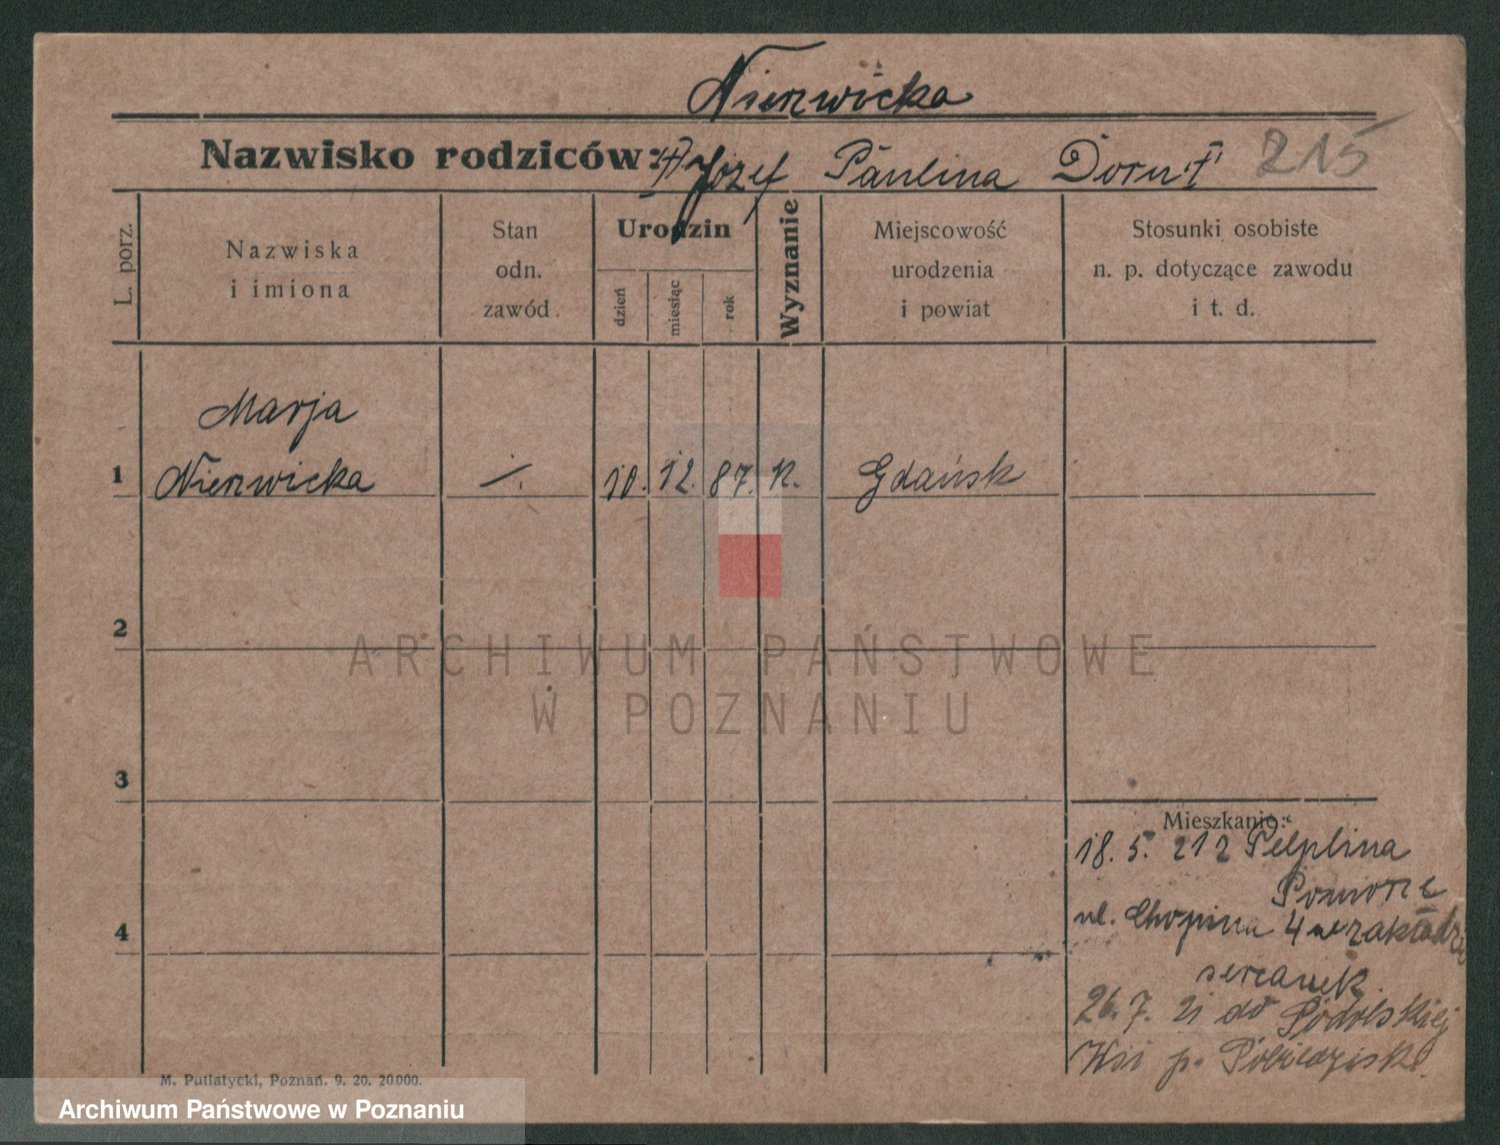 Nierzwicka
Nazwisko rodziców: Józef Paulina Dorut 215
L. porz.
Nazwiska
i imiona
Stan
odn.
zawód.
Urodzin
dzień
miesiąc
rok
Wyznanie
Miejscowość
urodzenia
i powiat
Stosunki osobiste
n. p. dotyczące zawodu
i t. d.
Marja
1 Nierzwicka ./. 10. 12. 87. k. Gdańsk
2
ARCHIWUM PAŃSTWOWE
W POZNANIU
3
Mieszkanie:
18. 5. 21 z Pelplina
Pomorze
4
ul. Chopina 4 w zakładzie
sercanek
26. 7. 21 do Podolskiej
Wsi p.
M. Putiatycki, Poznań. 9. 20. 20000.
Archiwum Państwowe w Poznaniu